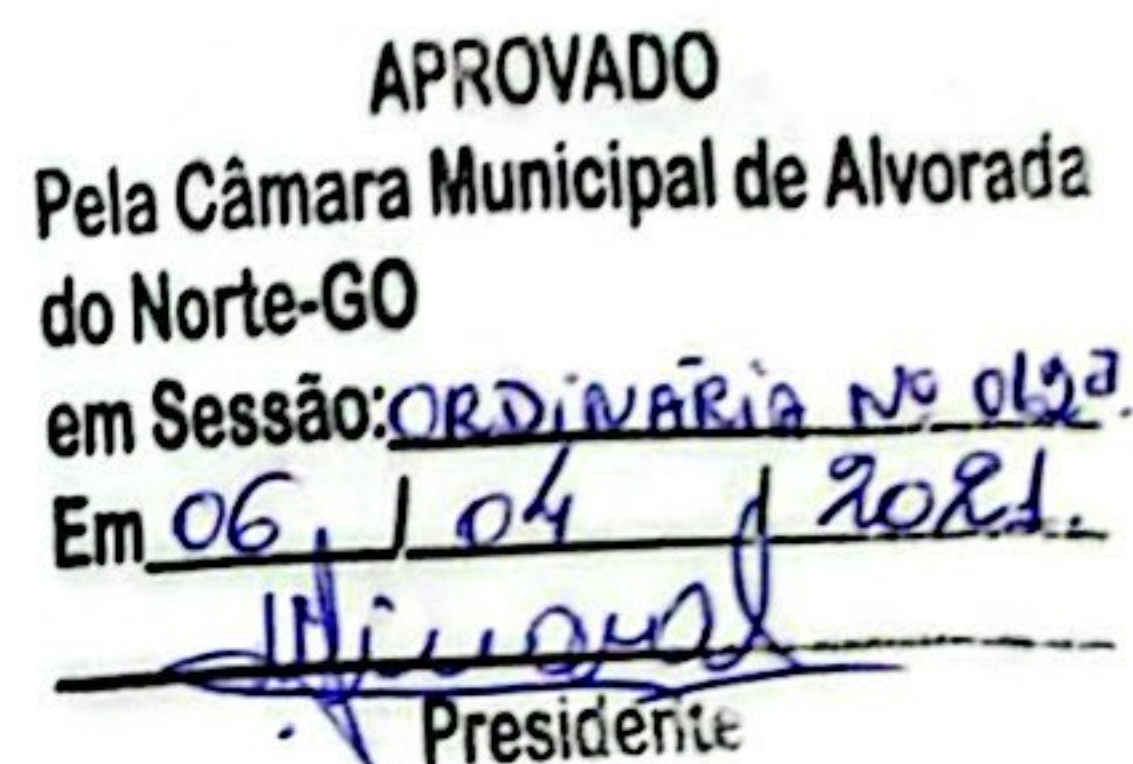 APROVADO
Pela Câmara Municipal de Alvorada
do Norte-GO
em Sessão: ORDINÁRIA Nº 012ª.
Em 06 / 04 / 2021.
Presidente